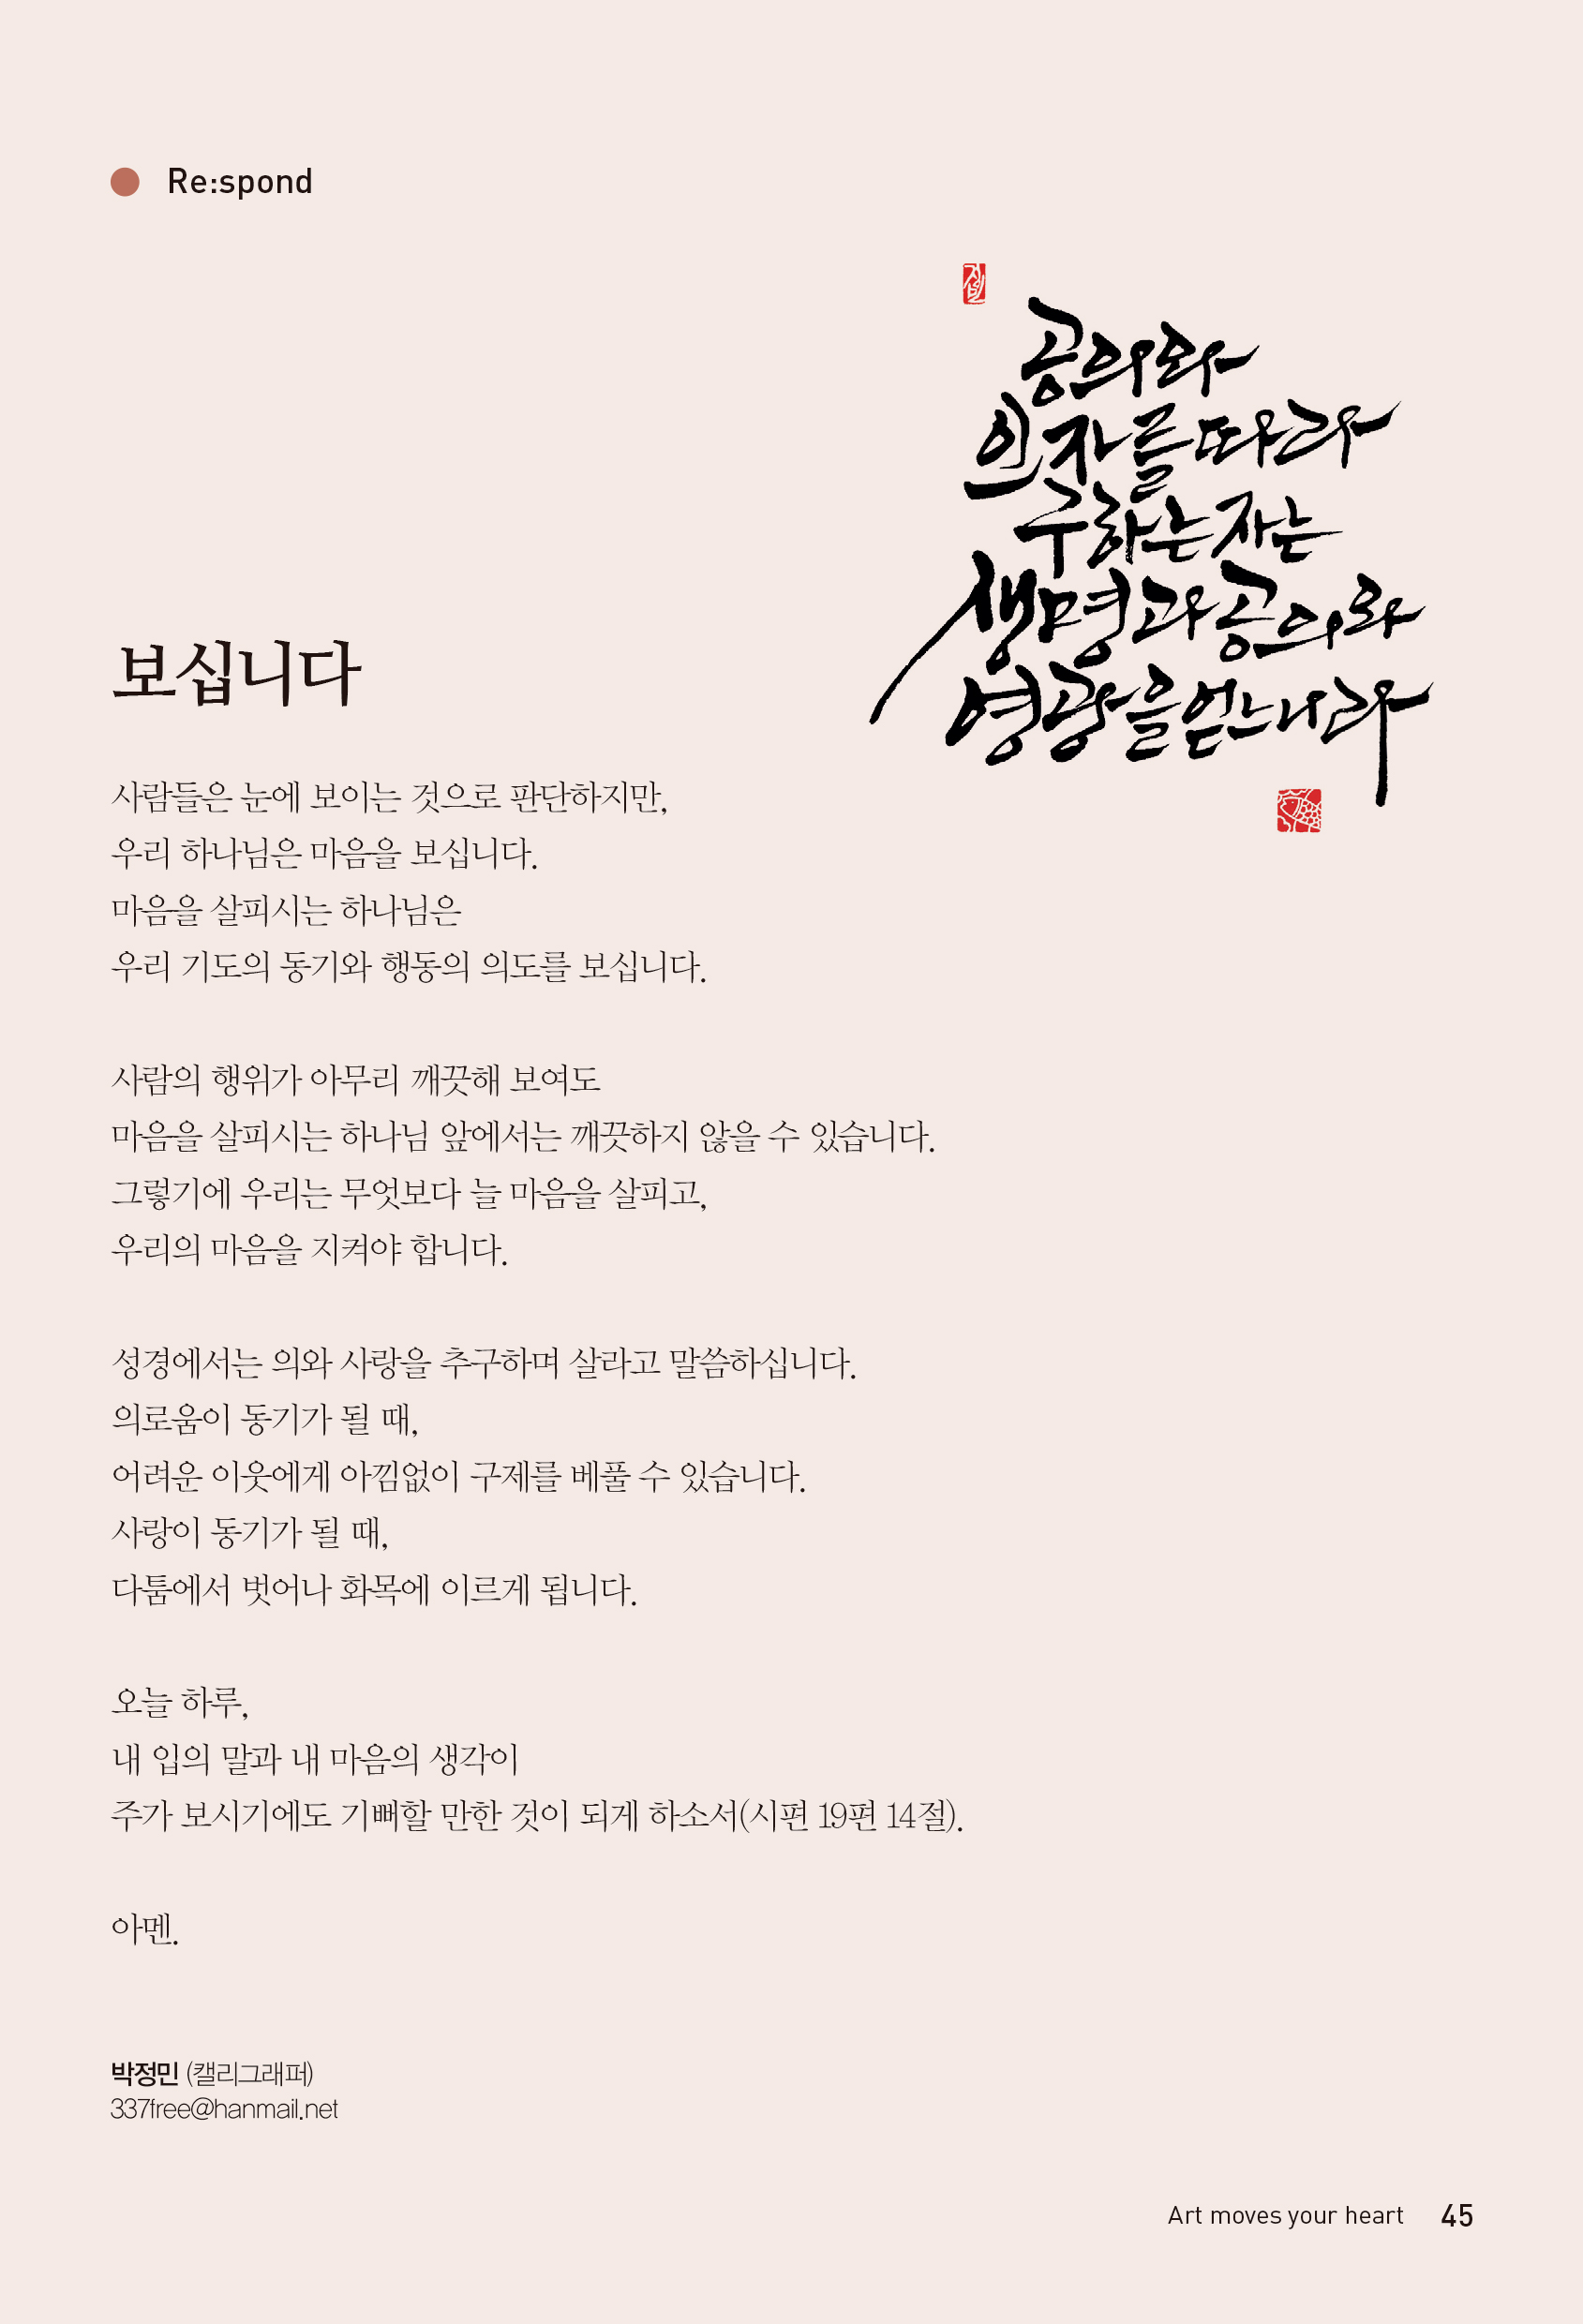 Re:spond
공의와
인자를 따라
구하는 자는
생명과 공의와
영광을 얻느니라
보십니다
사람들은 눈에 보이는 것으로 판단하지만,
우리 하나님은 마음을 보십니다.
마음을 살피시는 하나님은
우리 기도의 동기와 행동의 의도를 보십니다.
사람의 행위가 아무리 깨끗해 보여도
마음을 살피시는 하나님 앞에서는 깨끗하지 않을 수 있습니다.
그렇기에 우리는 무엇보다 늘 마음을 살피고,
우리의 마음을 지켜야 합니다.
성경에서는 의와 사랑을 추구하며 살라고 말씀하십니다.
의로움이 동기가 될 때,
어려운 이웃에게 아낌없이 구제를 베풀 수 있습니다.
사랑이 동기가 될 때,
다툼에서 벗어나 화목에 이르게 됩니다.
오늘 하루,
내 입의 말과 내 마음의 생각이
주가 보시기에도 기뻐할 만한 것이 되게 하소서(시편 19편 14절).
아멘.
박정민 (캘리그래퍼)
337free@hanmail.net
Art moves your heart 45